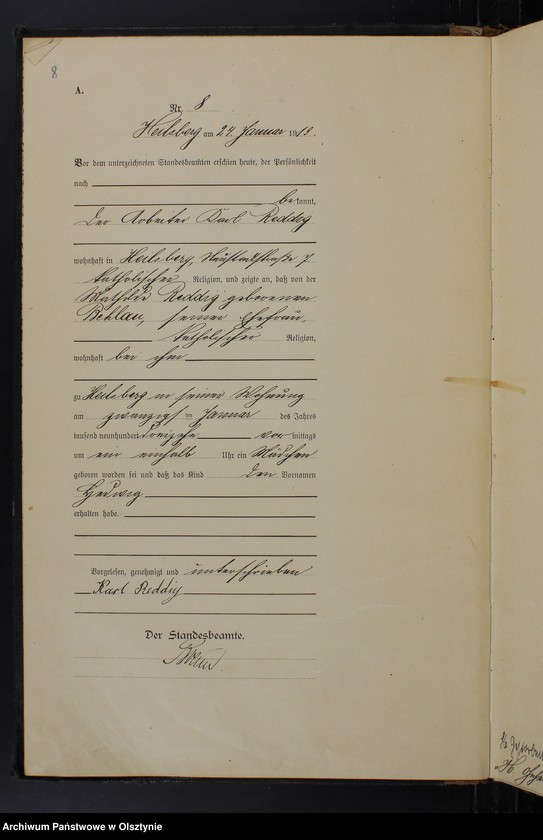 8
A.
Nr. 8
Heilsberg am 24. Januar 1913.
Vor dem unterzeichneten Standesbeamten erschien heute, der Persönlichkeit
nach
be kannt,
der Arbeiter Karl Reddig
wohnhaft in Heilsberg, Neustadtstraße 7
katholischer Religion, und zeigte an, daß von der
Mathilde Reddig geborenen
Behlau, seiner Ehefrau,
katholischer Religion,
wohnhaft bei ihm
zu Heilsberg in seiner Wohnung
am zwanzigsten Januar des Jahres
tausend neunhundert dreizehn vor mittags
um ein einhalb Uhr ein Mädchen
geboren worden sei und daß das Kind den Vornamen
Hedwig
erhalten habe.
Vorgelesen, genehmigt und unterschrieben
Karl Reddig
Der Standesbeamte.
Archiwum Państwowe w Olsztynie